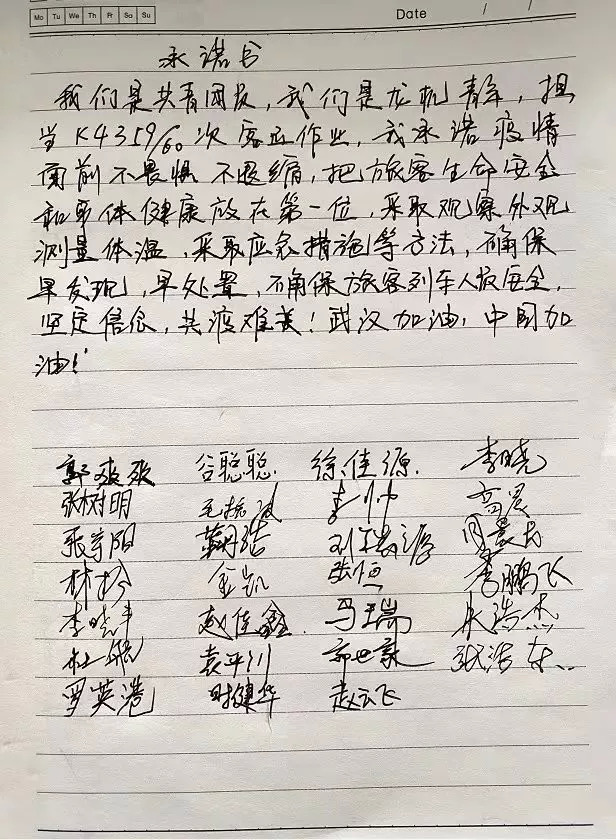 Mo Tu We Th Fr Sa Su
Date / /
承诺书
我们是共青团员，我们是龙机青年，担
当K4359/60次客运作业，我承诺疫情
面前不畏惧 不退缩，把旅客生命安全
和身体健康放在第一位，采取观察外观
测量体温，采取应急措施等方法，确保
早发现，早处置，确保旅客列车人员安全，
坚定信念，共渡难关！武汉加油，中国加
油！
郭爽爽 谷聪聪 徐佳源 李晓
张树明 李帅 高晨
张宇阳
林松 金凯 张恒 李鹏飞
李晓丰 赵佳鑫 马瑞 朱浩杰
杜航 袁平川 郭世豪 张浩东
罗英港 时健华 赵云飞